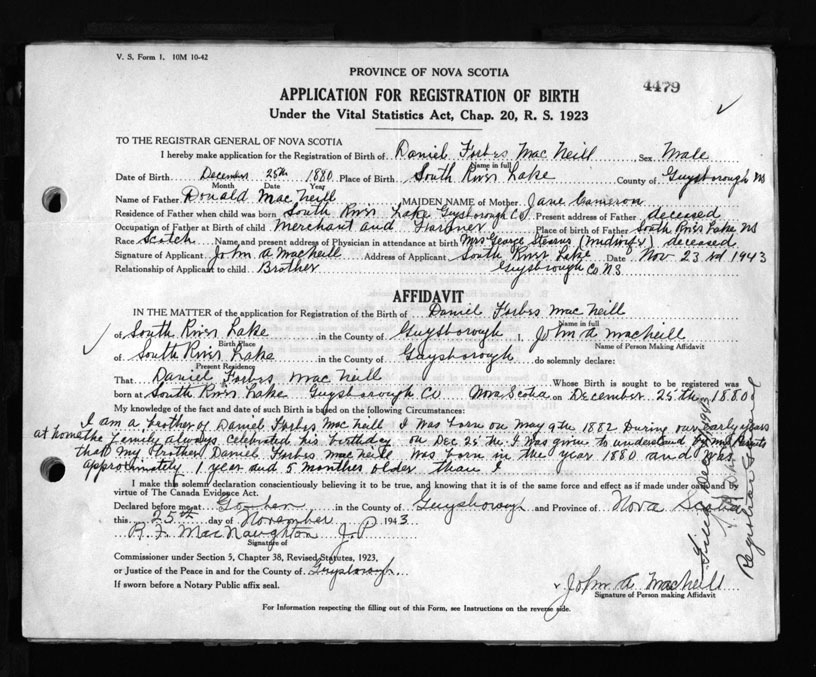 V. S. Form 1. 10M 10-42
PROVINCE OF NOVA SCOTIA
4479
APPLICATION FOR REGISTRATION OF BIRTH
Under the Vital Statistics Act, Chap. 20, R. S. 1923
TO THE REGISTRAR GENERAL OF NOVA SCOTIA
I hereby make application for the Registration of Birth of Daniel Forbes MacNeill, Sex Male
Name in full
Date of Birth December 25th 1880 Place of Birth South River Lake County of Guysborough NS
Month Date Year
Name of Father Donald MacNeill MAIDEN NAME of Mother Jane Cameron
Residence of Father when child was born South River Lake Guysborough Co Present address of Father deceased
Occupation of Father at Birth of child Merchant and Farmer Place of birth of Father South River Lake NS
Race Scotch Name and present address of Physician in attendance at birth Mrs George Stearns (midwife) deceased
Signature of Applicant John A MacNeill Address of Applicant South River Lake Date Nov 23rd 1943
Relationship of Applicant to child Brother Guysborough Co NS
AFFIDAVIT
IN THE MATTER of the application for Registration of the Birth of Daniel Forbes MacNeill
Name in full
of South River Lake in the County of Guysborough I, John A MacNeill
Birth Place Name of Person Making Affidavit
of South River Lake in the County of Guysborough do solemnly declare:
Present Residence
That Daniel Forbes MacNeill Whose Birth is sought to be registered was
born at South River Lake Guysborough Co Nova Scotia on December 25th 1880
My knowledge of the fact and date of such Birth is based on the following Circumstances:
I am a brother of Daniel Forbes MacNeill I was born on May 9th 1882 During our early years
at home the Family always celebrated his birthday on Dec 25th I was given to understand by my Parents
that My Brother Daniel Forbes MacNeill was born in the year 1880 and was
approximately 1 year and 5 months older than I
I make this solemn declaration conscientiously believing it to be true, and knowing that it is of the same force and effect as if made under oath and by
virtue of The Canada Evidence Act.
Declared before me at Goshen in the County of Guysborough and Province of Nova Scotia
this 25th day of November 1943
R. F. MacNaughton J.P
Signature of
Commissioner under Section 5, Chapter 38, Revised Statutes, 1923,
or Justice of the Peace in and for the County of Guysborough
If sworn before a Notary Public affix seal.
John A MacNeill
Signature of Person making Affidavit
For Information respecting the filling out of this Form, see Instructions on the reverse side.
Filed Dec 1943
Registrar General